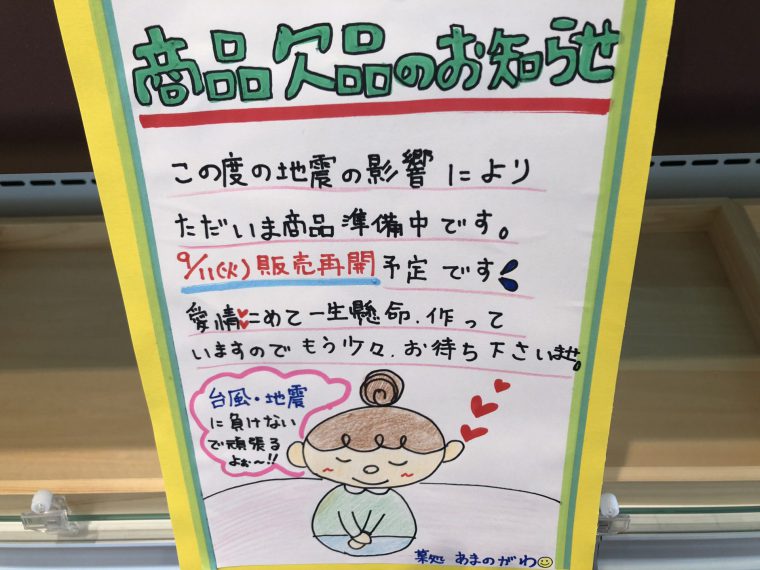 商品欠品のお知らせ
この度の地震の影響により
ただいま商品準備中です。
9/11(火)販売再開予定です
愛情こめて一生懸命、作って
いますのでもう少々、お待ち下さいませ。
台風・地震
に負けない
で頑張る
よぉ〜!!
菓処 あまのがわ